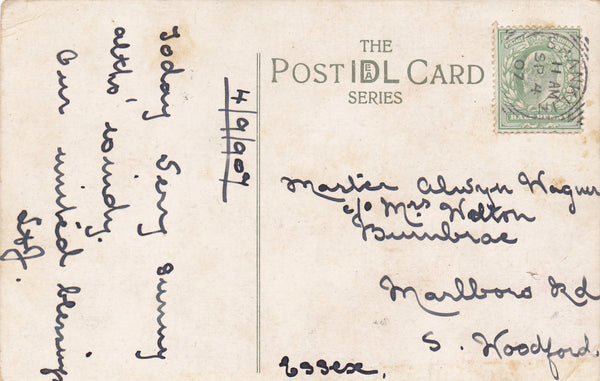 THE
POST IDL CARD
SERIES
SHANKLIN
11 AM
SP 4
07
HALFPENNY
4/9/907
Today very sunny
altho' windy.
Our united blessings
Master Alwyn Wagner
c/o Mrs Welton
Burnbrae
Marlboro Rd
S. Woodford.
Essex.